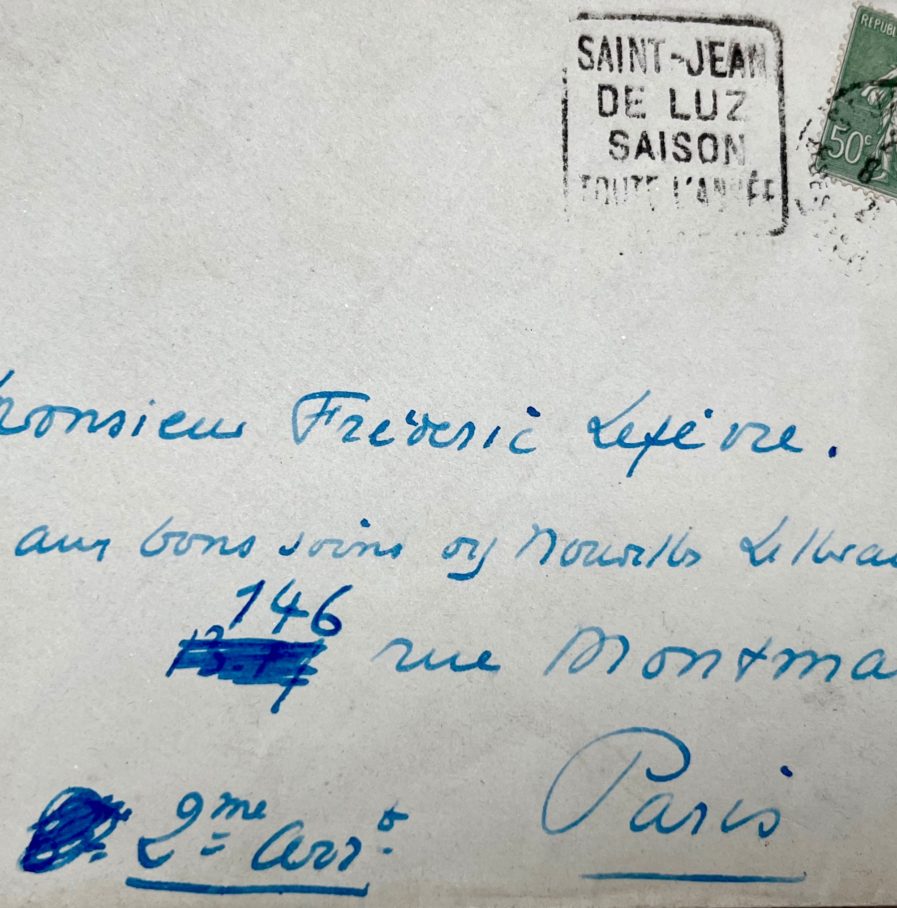 SAINT-JEAN
DE LUZ
SAISON
TOUTE L'ANNÉE
RÉPUBL
50c
Monsieur Frédéric Lefèvre.
aux bons soins des Nouvelles Littérai
146
rue Montma
2me arrt
Paris